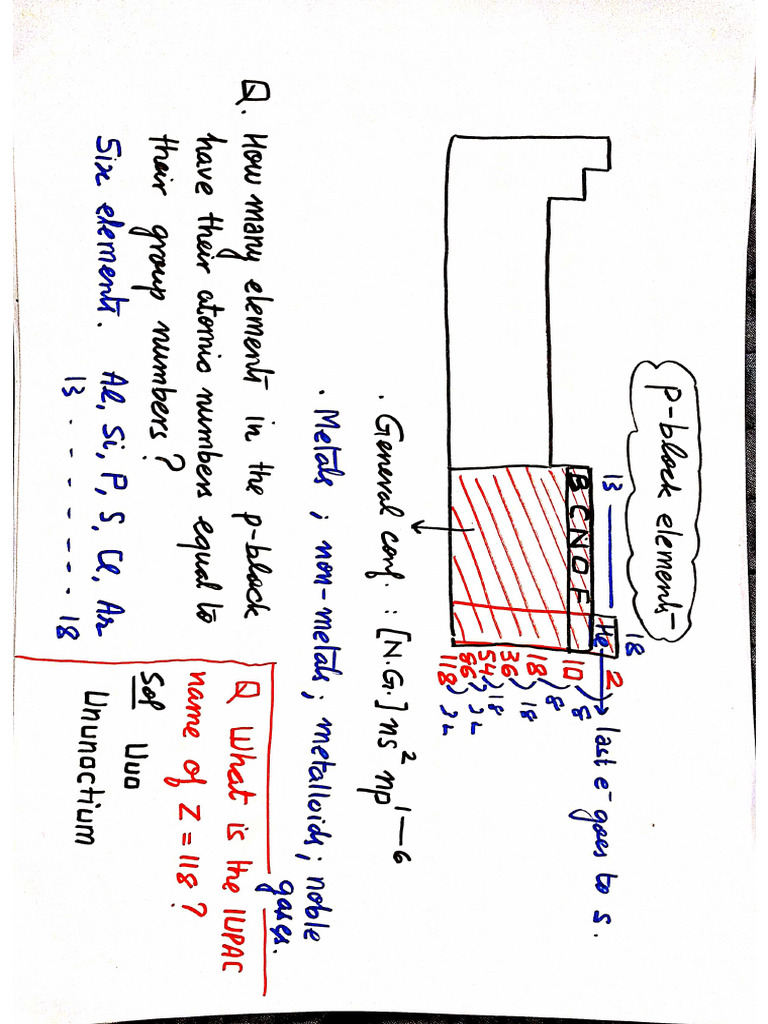 p-block elements
13 18
He 2 last e⁻ goes to s.
B C N O F 10 8
18 8
36 18
54 18
86 32
118 32
. General conf. : [N.G.] ns² np¹—⁶
. Metals ; non-metals ; metalloids ; noble
gases.
Q. How many elements in the p-block
have their atomic numbers equal to
their group numbers?
Six elements. Al, Si, P, S, Cl, Ar
13 . - - - - - - . . 18
Q What is the IUPAC
name of Z = 118 ?
Sol Uuo
Ununoctium